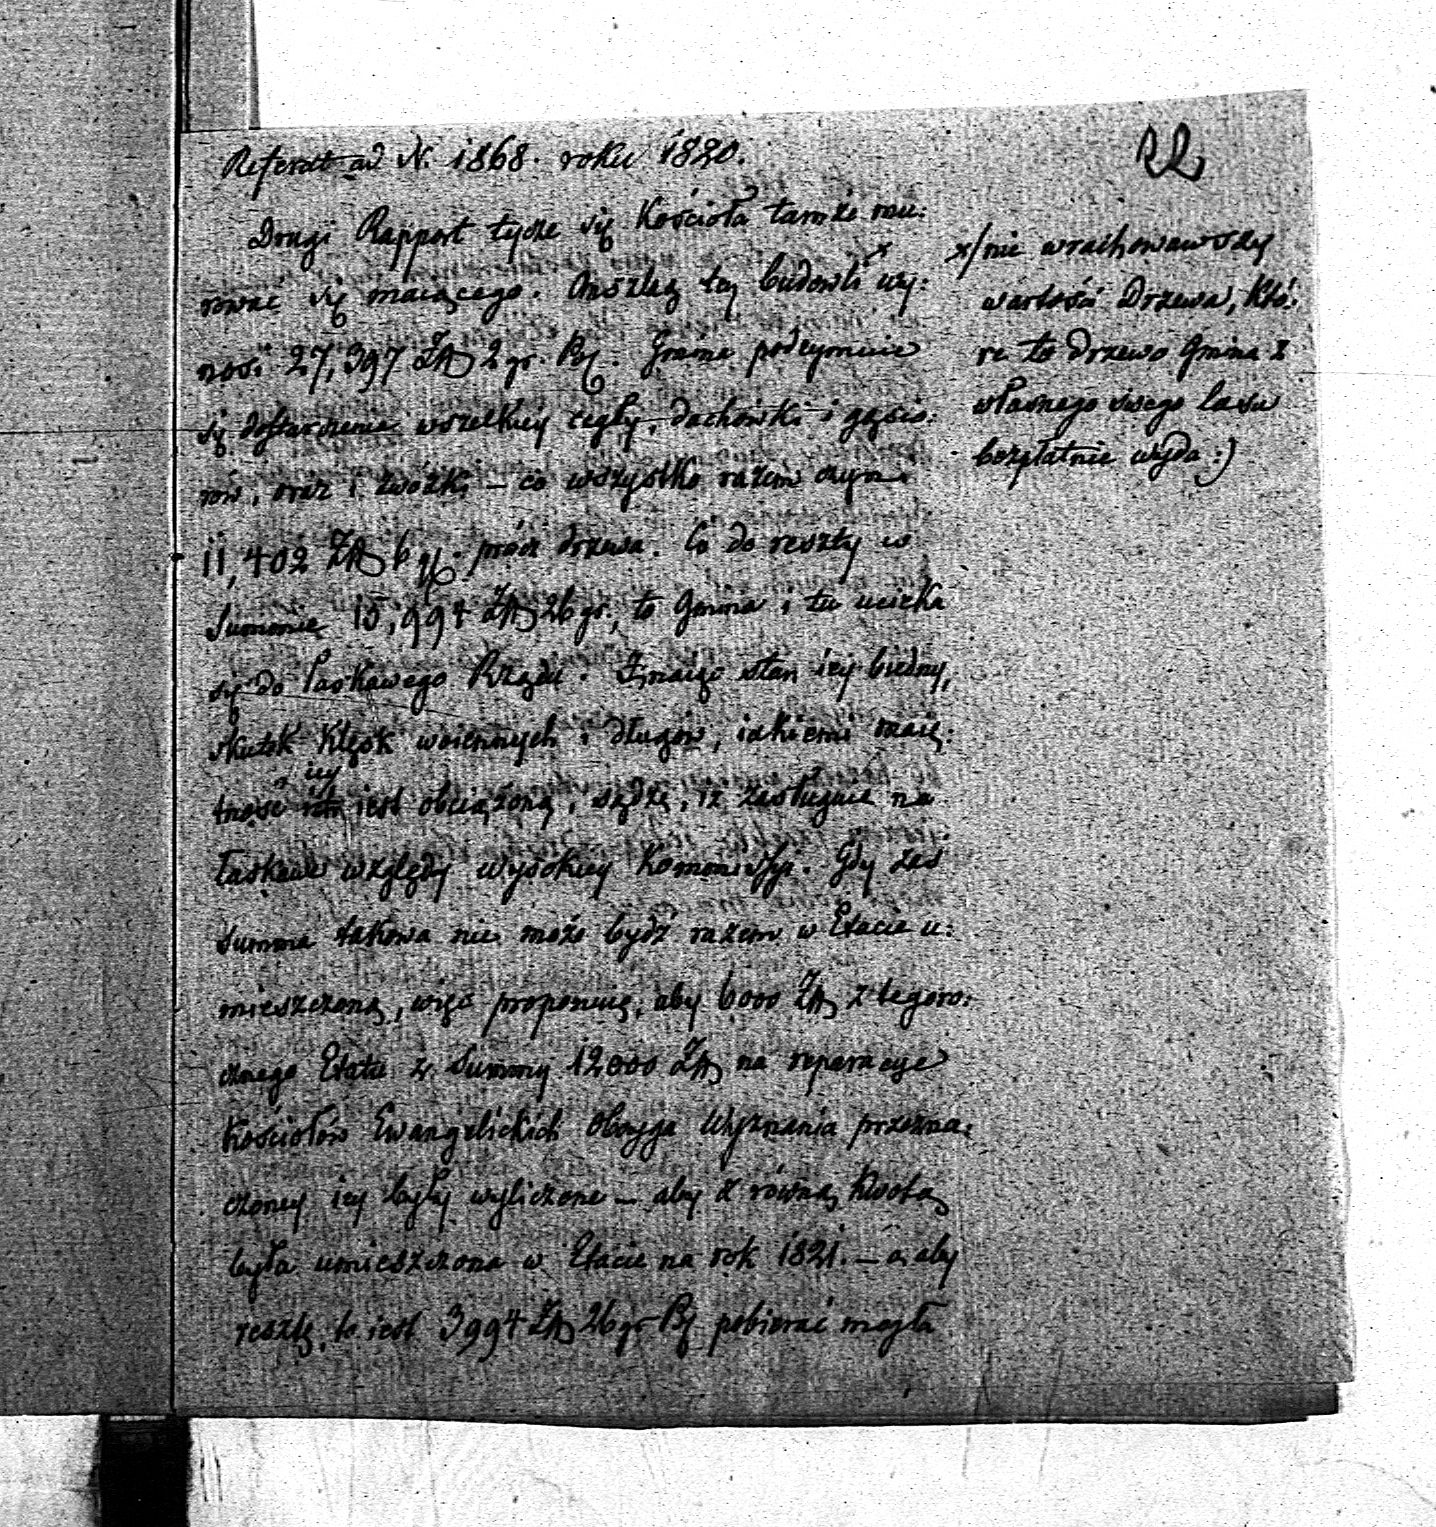 Referat ad N. 1868. roku 1820.
22
Drugi Rapport tycze się Kościoła tamże mu:
rować się maiącego. Anszlag tey budowli x wy:
nosi 27,397 Zł 2 gr. Pol. Gmina podeymuie
się dostarczenia wszelkiey cegły, dachówki i gąsio:
rów, oraz i zwózki – co wszystko razem czyni
11,402 Zł 6 gr. prócz drzewa. Co do reszty w
Summie 15,994 Zł 26 gr., to Gmina i tu ucieka
się do łaskawego Rządu. Znaiąc stan iey biedny,
skutek klęsk woiennych i długów, iakiemi maią:
tność iey iest obciążoną, sądzę, iż zasługuie na
łaskawe względy wysokiey Kommissyi. Gdy zaś
Summa takowa nie może bydź razem w Etacie u:
mieszczoną, więc proponuię, aby 6000 Zł z tegoro:
cznego Etatu z Summy 12000 Zł na reperacye
Kościołów Ewangelickich oboyga Wyznania przezna:
czoney iey były wyliczone – aby z równą kwotą
była umieszczona w Etacie na rok 1821. – a aby
resztę to iest 3994 Zł 26 gr Pol pobierać mogła
x/ nie wrachowawszy
wartości Drzewa, któ:
re to drzewo Gmina z
własnego swego lasu
bezpłatnie wyda :)